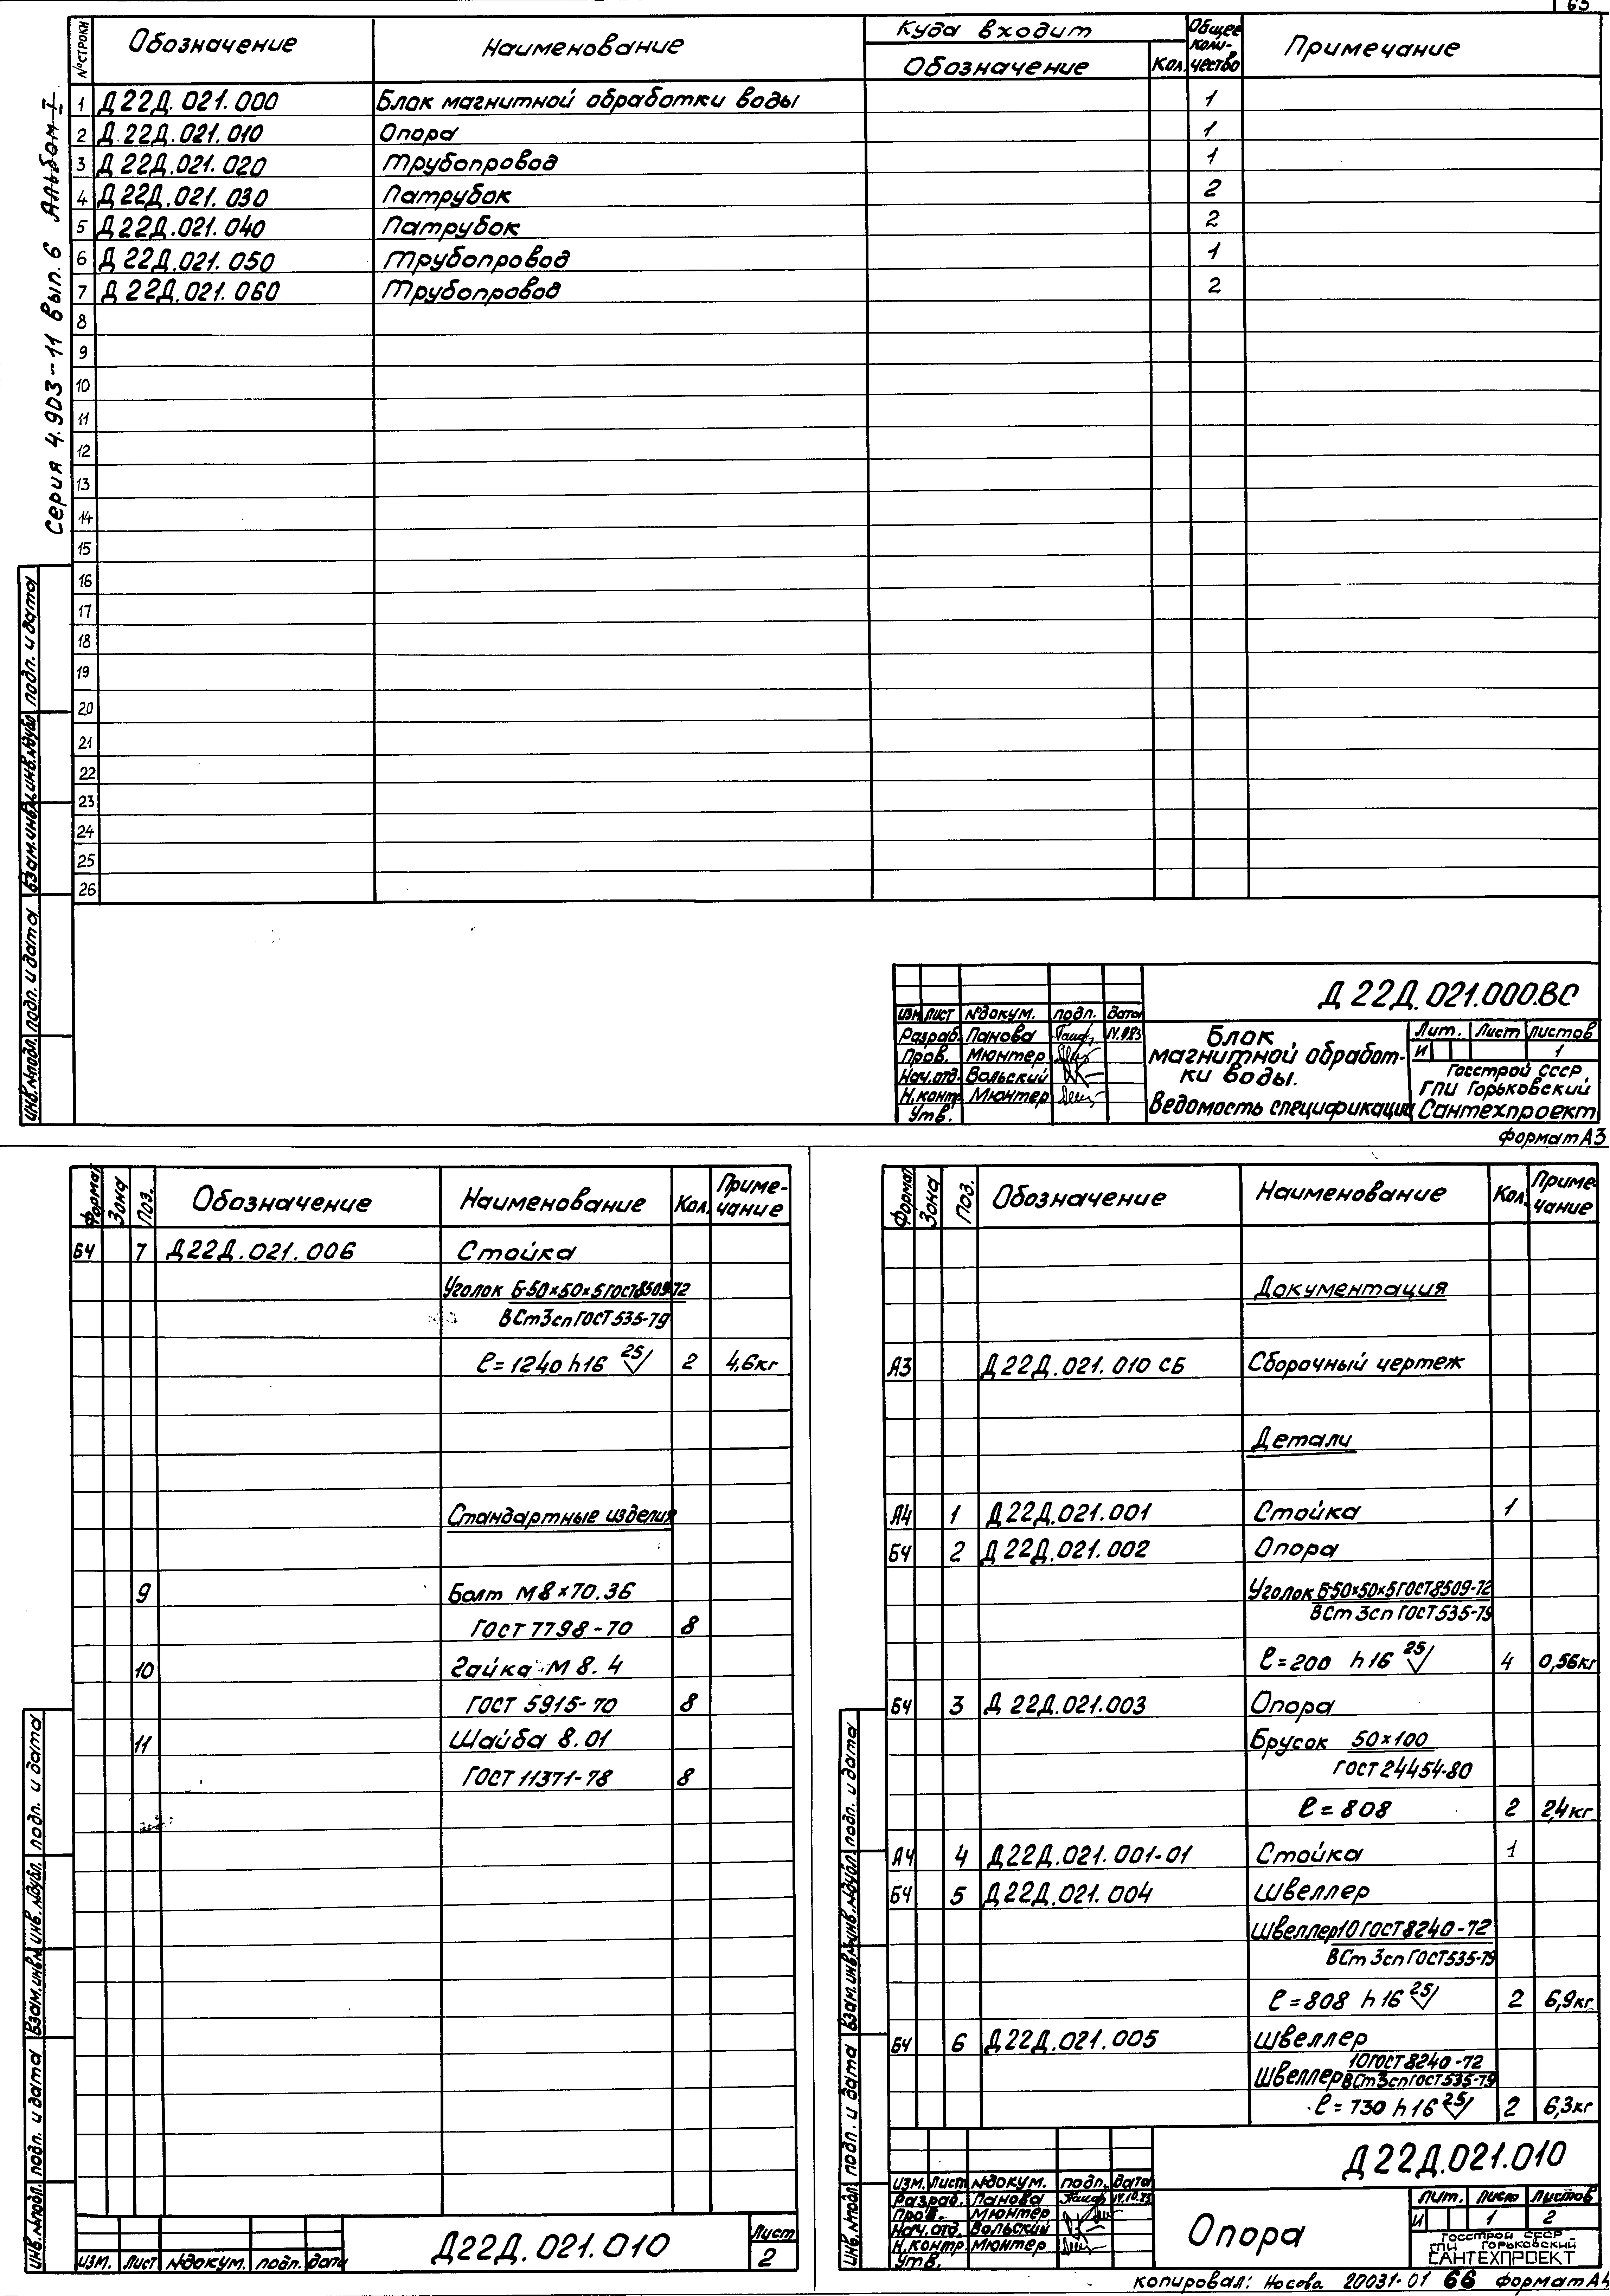 63
Серия 4.903-11 Вып. 6 Альбом I
№ строки Обозначение Наименование Куда входит Общее количество Примечание
Обозначение Кол.
1 Д 22Д.021.000 Блок магнитной обработки воды 1
2 Д 22Д.021.010 Опора 1
3 Д 22Д.021.020 Трубопровод 1
4 Д 22Д.021.030 Патрубок 2
5 Д 22Д.021.040 Патрубок 2
6 Д 22Д.021.050 Трубопровод 1
7 Д 22Д.021.060 Трубопровод 2
8
9
10
11
12
13
14
15
16
17
18
19
20
21
22
23
24
25
26
Инв.№подл. Подп. и дата Взам.инв.№ Инв.№дубл. Подп. и дата
Д 22Д.021.000.ВС
Изм Лист №докум. Подп. Дата
Разраб. Панова
Пров. Мюнтер
Нач.отд. Вольский
Н.контр. Мюнтер
Утв.
Блок
магнитной обработ-
ки воды.
Ведомость спецификации
Лит. Лист Листов
И 1
Госстрой СССР
ГПИ Горьковский
Сантехпроект
Формат А3
Формат Зона Поз. Обозначение Наименование Кол. Приме-
чание
БЧ 7 Д22Д.021.006 Стойка
Уголок Б-50×50×5 ГОСТ 8509-72
ВСт3сп ГОСТ 535-79
ℓ=1240 h16 25 2 4,6кг
Стандартные изделия
9 Болт М8×70.36
ГОСТ 7798-70 8
10 Гайка М 8.4
ГОСТ 5915-70 8
11 Шайба 8.01
ГОСТ 11371-78 8
Инв.№подл. Подп. и дата Взам.инв.№ Инв.№дубл. Подп. и дата
Изм. Лист №докум. Подп. Дата
Д22Д.021.010
Лист
2
Формат Зона Поз. Обозначение Наименование Кол. Приме-
чание
Документация
А3 Д 22Д.021.010 СБ Сборочный чертеж
Детали
А4 1 Д 22Д.021.001 Стойка 1
БЧ 2 Д 22Д.021.002 Опора
Уголок Б-50×50×5 ГОСТ 8509-72
ВСт 3сп ГОСТ 535-79
ℓ=200 h16 25 4 0,56кг
БЧ 3 Д 22Д.021.003 Опора
Брусок 50×100
ГОСТ 24454-80
ℓ=808 2 2,4кг
А4 4 Д22Д.021.001-01 Стойка 1
БЧ 5 Д22Д.021.004 Швеллер
Швеллер 10 ГОСТ 8240-72
ВСт 3сп ГОСТ 535-79
ℓ=808 h16 25 2 6,9кг
БЧ 6 Д22Д.021.005 Швеллер
10 ГОСТ 8240-72
Швеллер ВСт3сп ГОСТ 535-79
ℓ=730 h16 25 2 6,3кг
Инв.№подл. Подп. и дата Взам.инв.№ Инв.№дубл. Подп. и дата
Д 22Д.021.010
Изм. Лист №докум. Подп. Дата
Разраб. Панова
Пров. Мюнтер
Нач.отд. Вольский
Н.контр. Мюнтер
Утв.
Опора
Лит. Лист Листов
И 1 2
Госстрой СССР
ГПИ Горьковский
САНТЕХПРОЕКТ
Копировал: Носова 20031-01 66 Формат А4